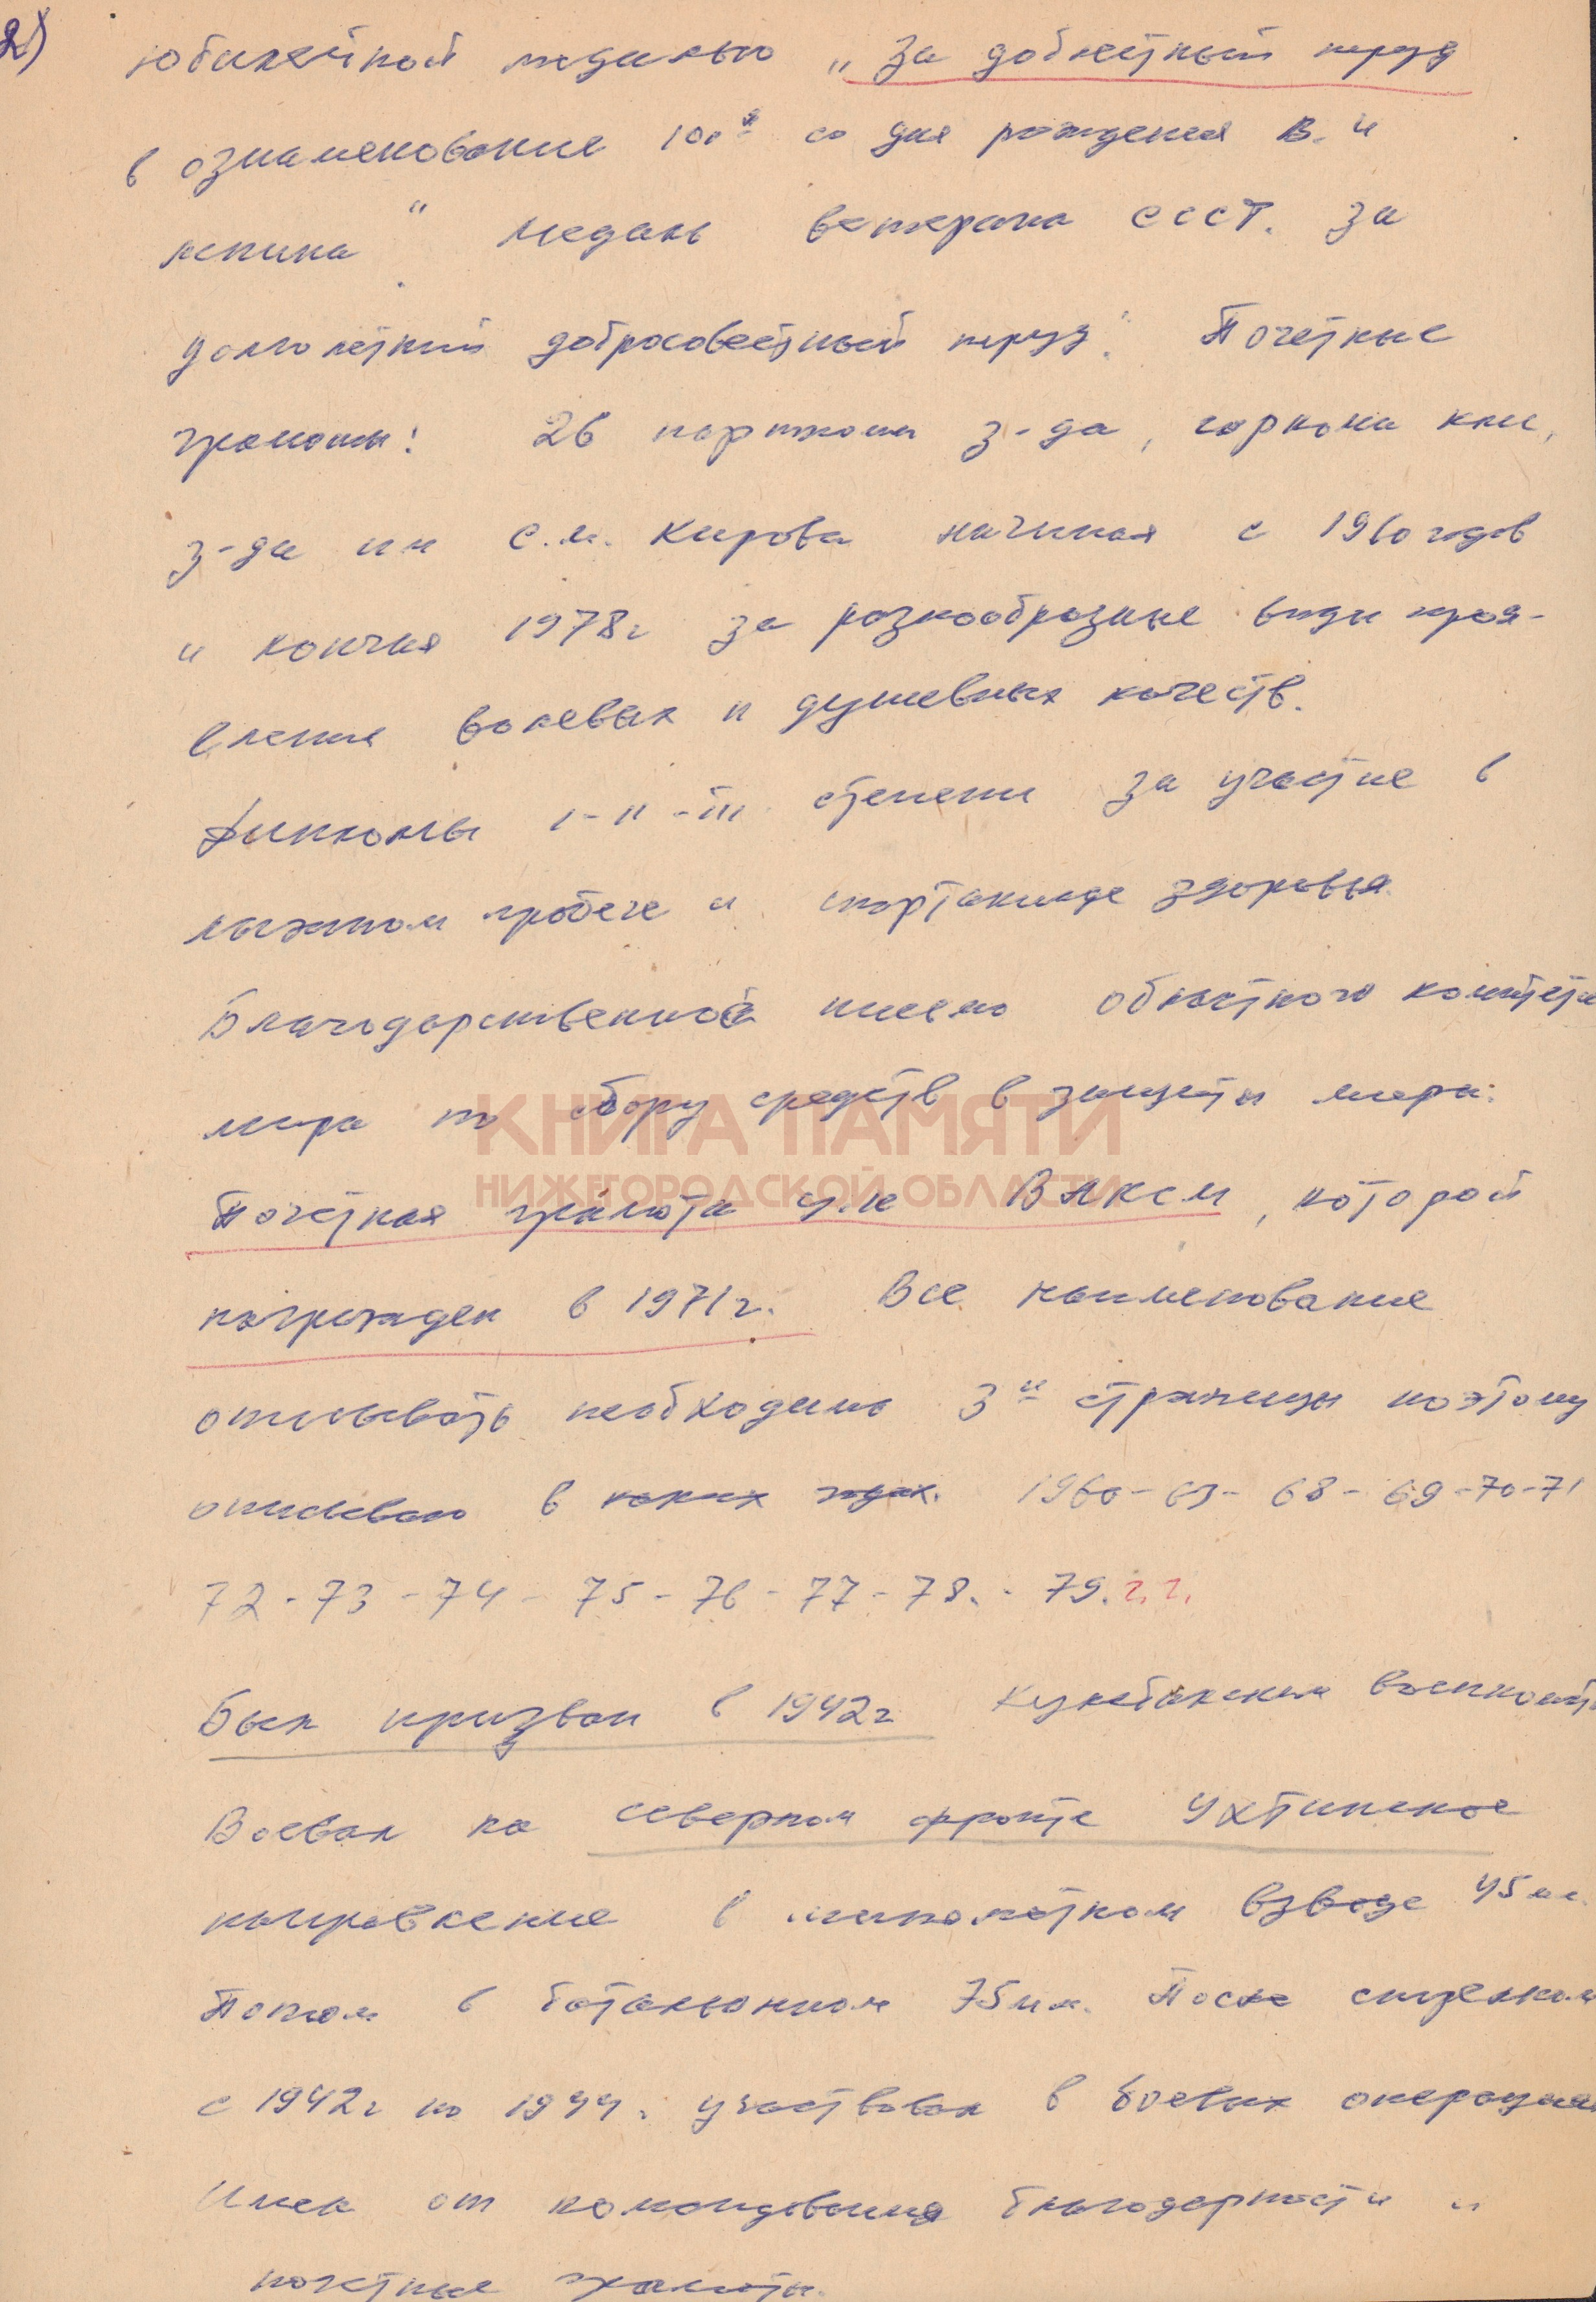 2)
юбилейной медалью „За доблестный труд
в ознаменование 100я со дня рождения В. И
Ленина" Медаль ветерана СССТ. За
долголетний добросовестный труд". Почетные
грамоты: 26 парткома з-да, горкома
з-да им С.М. Кирова начиная с 1960 годов
и кончая 1978г за разнообразные виды проя-
вления волевых и душевных качеств.
Дипломы I-II-III степени за участие в
лыжном пробеге и спортакиаде здоровья
Благодарственное письмо областного комитета
мира по сбору средств в защиты мира.
КНИГА ПАМЯТИ
НИЖЕГОРОДСКОЙ ОБЛАСТИ
Почетная грамота ЦК ВЛКСМ, которой
награжден в 1971г. Все наименование
описывать необходимо 3и страницы поэтому
описываю в каких годах. 1960-63-68-69-70-71
72-73-74-75-76-77-78.-79.г.г.
Был призван в 1942г Кулебакским военкомат
Воевал на северном фронте Ухтинское
направление в минометном взводе 45мм.
Потом в батальонном 75мм. После
с 1942г по 1944г участвовал в боевых операция
Имел от командования благодарности и
почетные грамоты.